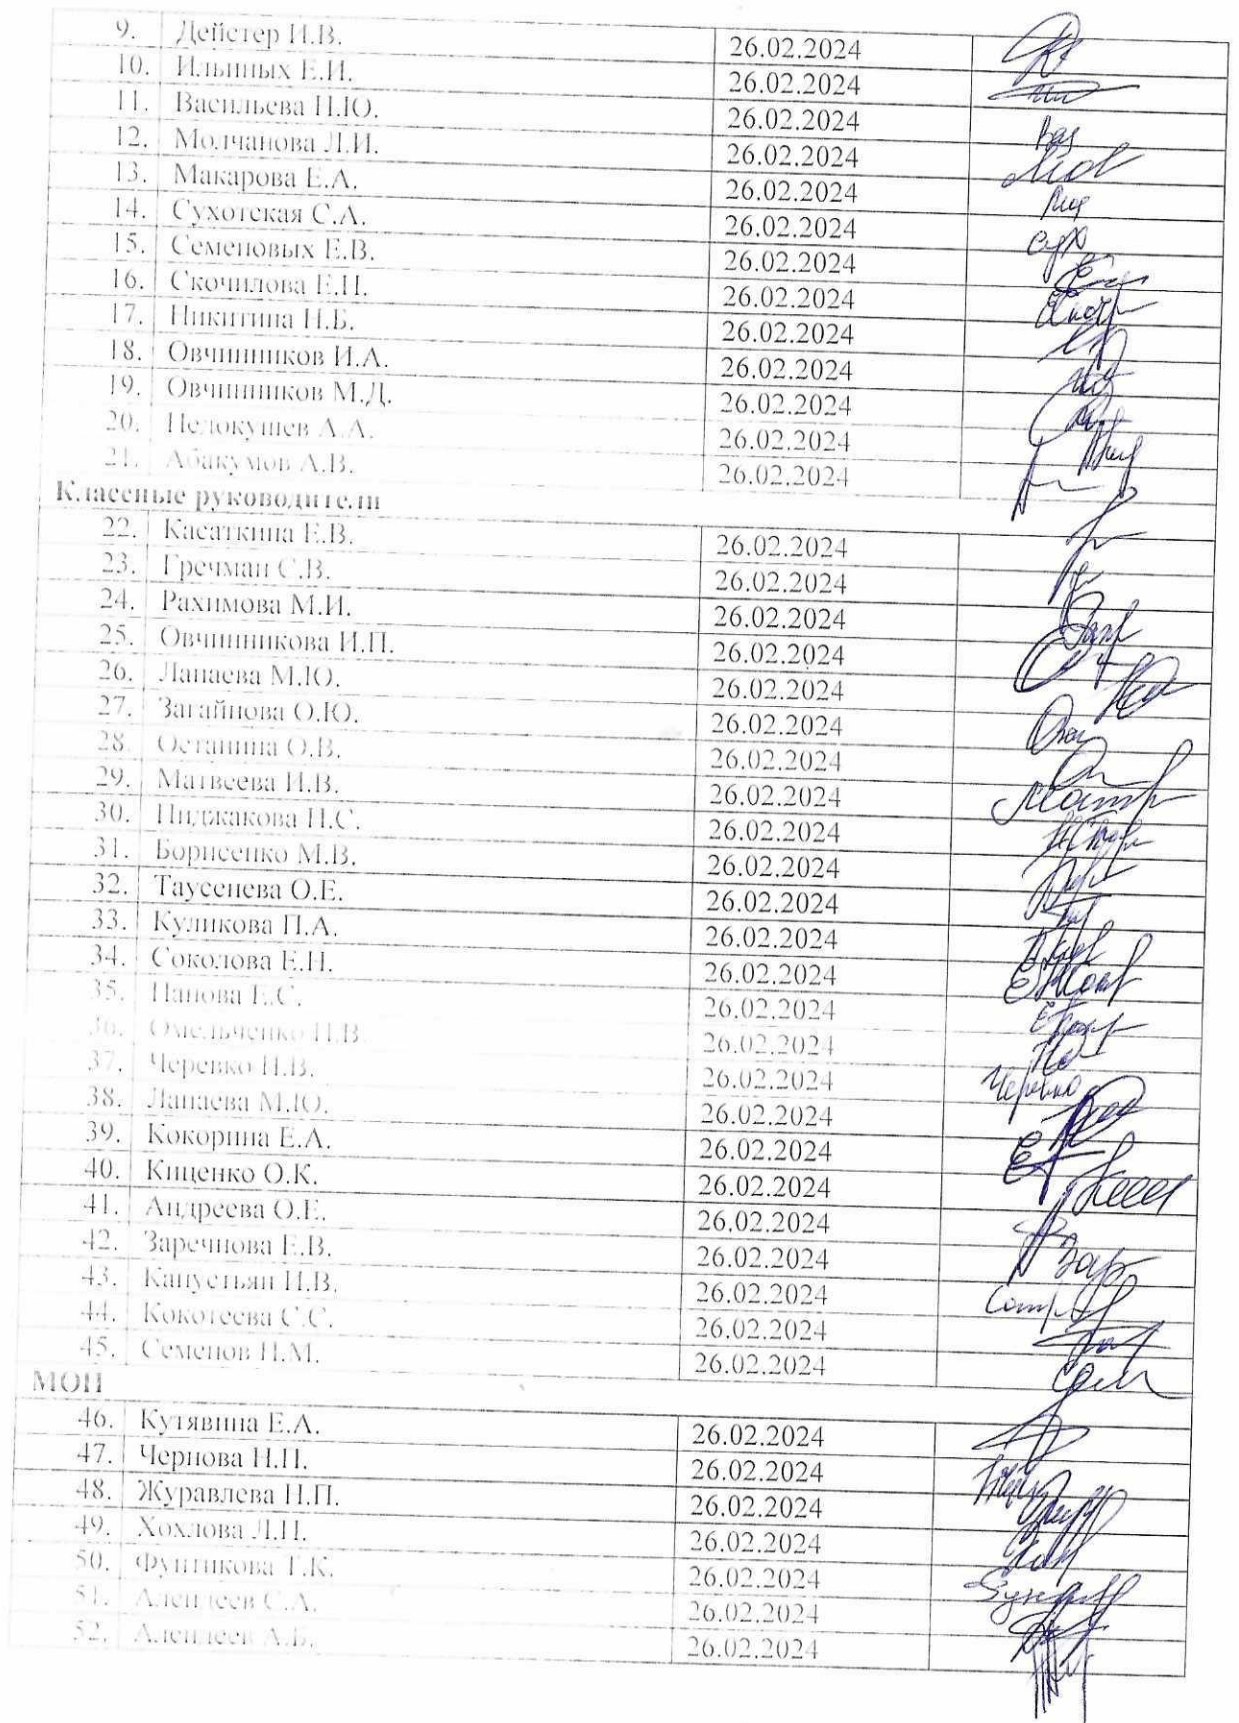 9. Дейстер И.В. 26.02.2024
10. Ильиных Е.И. 26.02.2024
11. Васильева Н.Ю. 26.02.2024
12. Молчанова Л.И. 26.02.2024
13. Макарова Е.А. 26.02.2024
14. Сухотская С.А. 26.02.2024
15. Семеновых Е.В. 26.02.2024
16. Скочилова Е.Н. 26.02.2024
17. Никитина Н.Б. 26.02.2024
18. Овчинников И.А. 26.02.2024
19. Овчинников М.Д. 26.02.2024
20. Недокушев А.А. 26.02.2024
21. Абакумов А.В. 26.02.2024
Классные руководители
22. Касаткина Е.В. 26.02.2024
23. Гречман С.В. 26.02.2024
24. Рахимова М.И. 26.02.2024
25. Овчинникова И.П. 26.02.2024
26. Лапаева М.Ю. 26.02.2024
27. Загайнова О.Ю. 26.02.2024
28. Останина О.В. 26.02.2024
29. Матвеева И.В. 26.02.2024
30. Пиджакова Н.С. 26.02.2024
31. Борисенко М.В. 26.02.2024
32. Таусенева О.Е. 26.02.2024
33. Куликова П.А. 26.02.2024
34. Соколова Е.Н. 26.02.2024
35. Панова Е.С. 26.02.2024
36. Омельченко Н.В 26.02.2024
37. Черевко Н.В. 26.02.2024 Черевко
38. Лапаева М.Ю. 26.02.2024
39. Кокорина Е.А. 26.02.2024
40. Киценко О.К. 26.02.2024
41. Андреева О.Е. 26.02.2024
42. Заречнова Е.В. 26.02.2024
43. Капустьян И.В. 26.02.2024
44. Кокотеева С.С. 26.02.2024
45. Семенов Н.М. 26.02.2024
МОП
46. Кутявина Е.А. 26.02.2024
47. Чернова Н.П. 26.02.2024
48. Журавлева Н.П. 26.02.2024
49. Хохлова Л.П. 26.02.2024
50. Фунтикова Т.К. 26.02.2024
51. Алендеев С.А. 26.02.2024
52. Алендеев А.Б. 26.02.2024